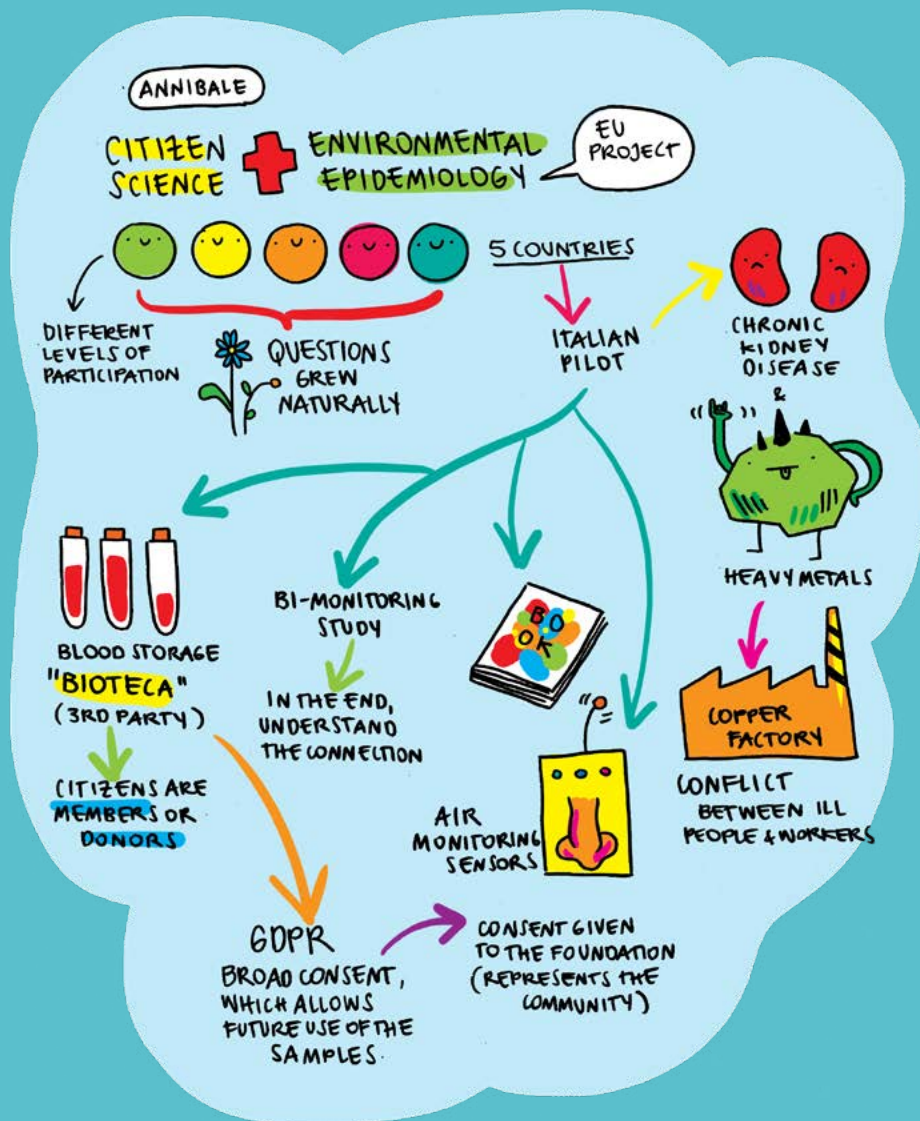 ANNIBALE
CITIZEN
SCIENCE
ENVIRONMENTAL
EPIDEMIOLOGY
EU
PROJECT
5 COUNTRIES
DIFFERENT
LEVELS OF
PARTICIPATION
QUESTIONS
GREW
NATURALLY
ITALIAN
PILOT
CHRONIC
KIDNEY
DISEASE
&
HEAVY METALS
COPPER
FACTORY
CONFLICT
BETWEEN ILL
PEOPLE & WORKERS
BLOOD STORAGE
"BIOTECA"
(3RD PARTY)
CITIZENS ARE
MEMBERS OR
DONORS
BI-MONITORING
STUDY
IN THE END,
UNDERSTAND
THE CONNECTION
BO
OK
AIR
MONITORING
SENSORS
GDPR
BROAD CONSENT,
WHICH ALLOWS
FUTURE USE OF THE
SAMPLES.
CONSENT GIVEN
TO THE FOUNDATION
(REPRESENTS THE
COMMUNITY)